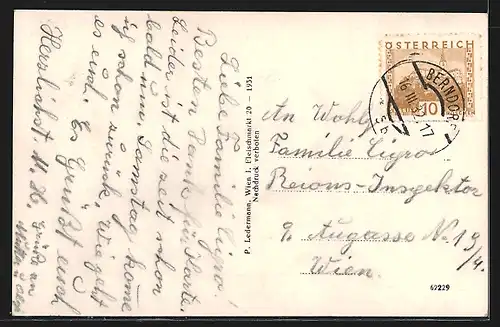 Liebe Familie Cigro!
Besten Dank für Karte.
Leider ist die Zeit schon
bald um. Samstag komme
ich schon zurück, wie geht
es euch. Es Grüßt euch
Herzlichst M.
Gruß an
P. Ledermann, Wien I. Fleischmarkt 20 — 1931
Nachdruck verboten
ÖSTERREICH
10
BERNDORF
An Wohlg.
Familie Cigro
Reions-Inspektor
9. Augasse No 19/4.
Wien.
69229